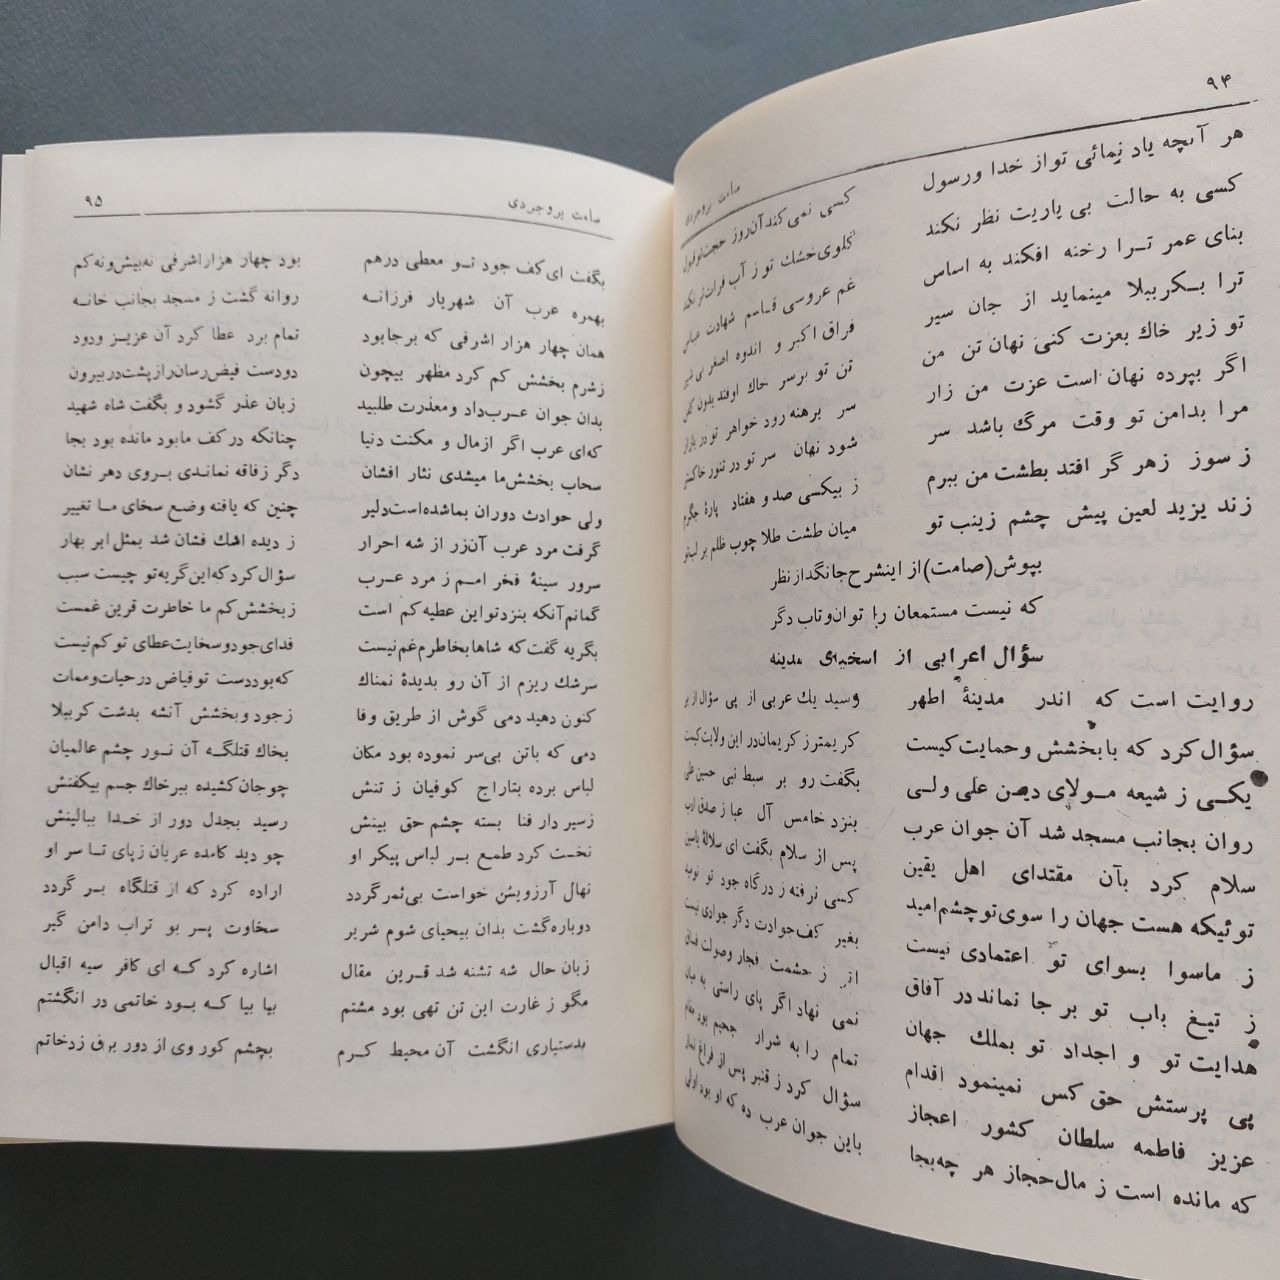 ۹۴
صامت بروجردی
هر آنچه یاد نمائی تو از خدا ورسول کسی نمی‌کند آن روز حجت تو قبول
کسی به حالت بی یاریت نظر نکند گلوی خشك تو ز آب فرات تر نکند
بنای عمر تـرا رخنه افکند به اساس غم عروسی قـاسم شهادت عباس
ترا بـکربـبلا مینماید از جان سیر فراق اکبر و اندوه اصغر بی شیر
تو زیر خاك بعزت کنی نهان تن من تن تو برسر خاك اوفتد بدون کفن
اگر بپرده نهان است عزت من زار سر برهنه رود خواهر تو در بازار
مرا بدامن تو وقت مرگ باشد سر شود نهان سر تو در تنور خاکستر
ز سوز زهر گر افتد بطشت من ببرم ز بیکسی صد و هفتاد پارهٔ جگرم
زند یزید لعین پیش چشم زینب تو میان طشت طلا چوب ظلم بر لب تو
بپوش (صامت) از اینشرح جانگداز نظر
که نیست مستمعان را توان و تاب دگر
سؤال اعرابی از اسخیای مدینه
روایت است که اندر مدینهٔ اطهر وسید یك عربی از پی سؤال از بر
سؤال کرد که با بخشش و حمایت کیست کریمتر ز کریمان در این ولایت کیست
یکـی ز شیعه مـولای دین علی ولـی بگفت رو بر سبط نبی حسین علی
روان بجانب مسجد شد آن جوان عرب بنزد خامس آل عبا ز صدق ادب
سلام کرد بآن مقتدای اهل یقین پس از سلام بگفت ای سلالهٔ یاسین
توئیکه هست جهان را سوی تو چشم امید کسی نرفته ز درگاه جود تو نومید
ز ماسوا بسوای تو اعتمادی نیست بغیر کف جوادت دگر جوادی نیست
ز تیـغ باب تو بر جا نماند در آفاق از ز حشمت فجار وصولت فساق
هدایت تو و اجداد تو بملك جهان نمی نهاد اگر پای راستی به میان
پی پرستش حق کس نمینمود اقدام تمام را به شرار جحیم بود مقام
عزیز فاطمه سلطان کشور اعجاز سؤال کرد ز قنبر پس از فراغ نماز
که مانده است ز مال حجاز هر چه بجا باین جوان عرب ده که او بود اولی
۹۵
صامت بروجردی
بگفت ای کف جود تـو معطی درهم بود چهار هزار اشرفی نه بیش و نه کم
بهمره عرب آن شهریار فرزانـه روانه گشت ز مسجد بجانب خانـه
همان چهار هزار اشرفی که برجا بود تمام برد عطا کرد آن عزیـز ودود
زشرم بخشش کم کرد مظهر بیچون دودست فیض رسان را ز پشت در بیرون
بدان جوان عـرب داد ومعذرت طلبید زبان عذر گشود و بگفت شاه شهید
که ای عرب اگر ازمال و مکنت دنیا چنانکه در کف مابود مانده بود بجا
سحاب بخشش ما میشدی نثار افشان دگر زفاقه نمانـدی بـروی دهر نشان
ولی حوادث دوران بماشده است دلیر چنین که یافته وضع سخای مـا تغییر
گرفت مرد عرب آن زر از شه احرار ز دیده اشك فشان شد بمثل ابر بهار
سرور سینهٔ فخر امـم ز مرد عـرب سؤال کرد که این گریه تو چیست سبب
گمانم آنکه بنزد تو این عطیه کم است زبخشش کم ما خاطرت قرین غمست
بگریه گفت که شاها بخاطرم غم نیست فدای جود و سخایت عطای تو کم نیست
سرشك ریزم از آن رو بدیدهٔ نمناك که بود دست تو فیاض در حیات و ممات
کنون دهید دمی گوش از طریق وفا زجود و بخشش آنشه بدشت کربـبلا
دمی که باتن بی‌سر نموده بود مکان بخاك قتلگـه آن نـور چشم عالمیان
لباس برده بتاراج کوفیان ز تنش چو جان کشیده ببر خاك جسم بیکفنش
زسیر دار فنا بسته چشم حق بینش رسید بجدل دور از خـدا ببالینش
نخـت کرد طمع بـر لباس پیکر او چو دید کامده عریان زپای تـا سر او
نهال آرزویش خواست بی‌ثمر گردد اراده کرد که از قتلگاه بـر گردد
دوباره گشت بدان بیحیای شوم شریر سخاوت پسر بو تراب دامن گیر
زبان حال شه تشنه شد قـرین مقال اشاره کرد کـه ای کافر سیه اقبال
مگو ز غارت این تن تهی بود مشتم بیا بیا کـه بـود خاتمی در انگشتم
بدستیاری انگشت آن محیط کـرم بچشم کور وی از دور برق زد خاتم